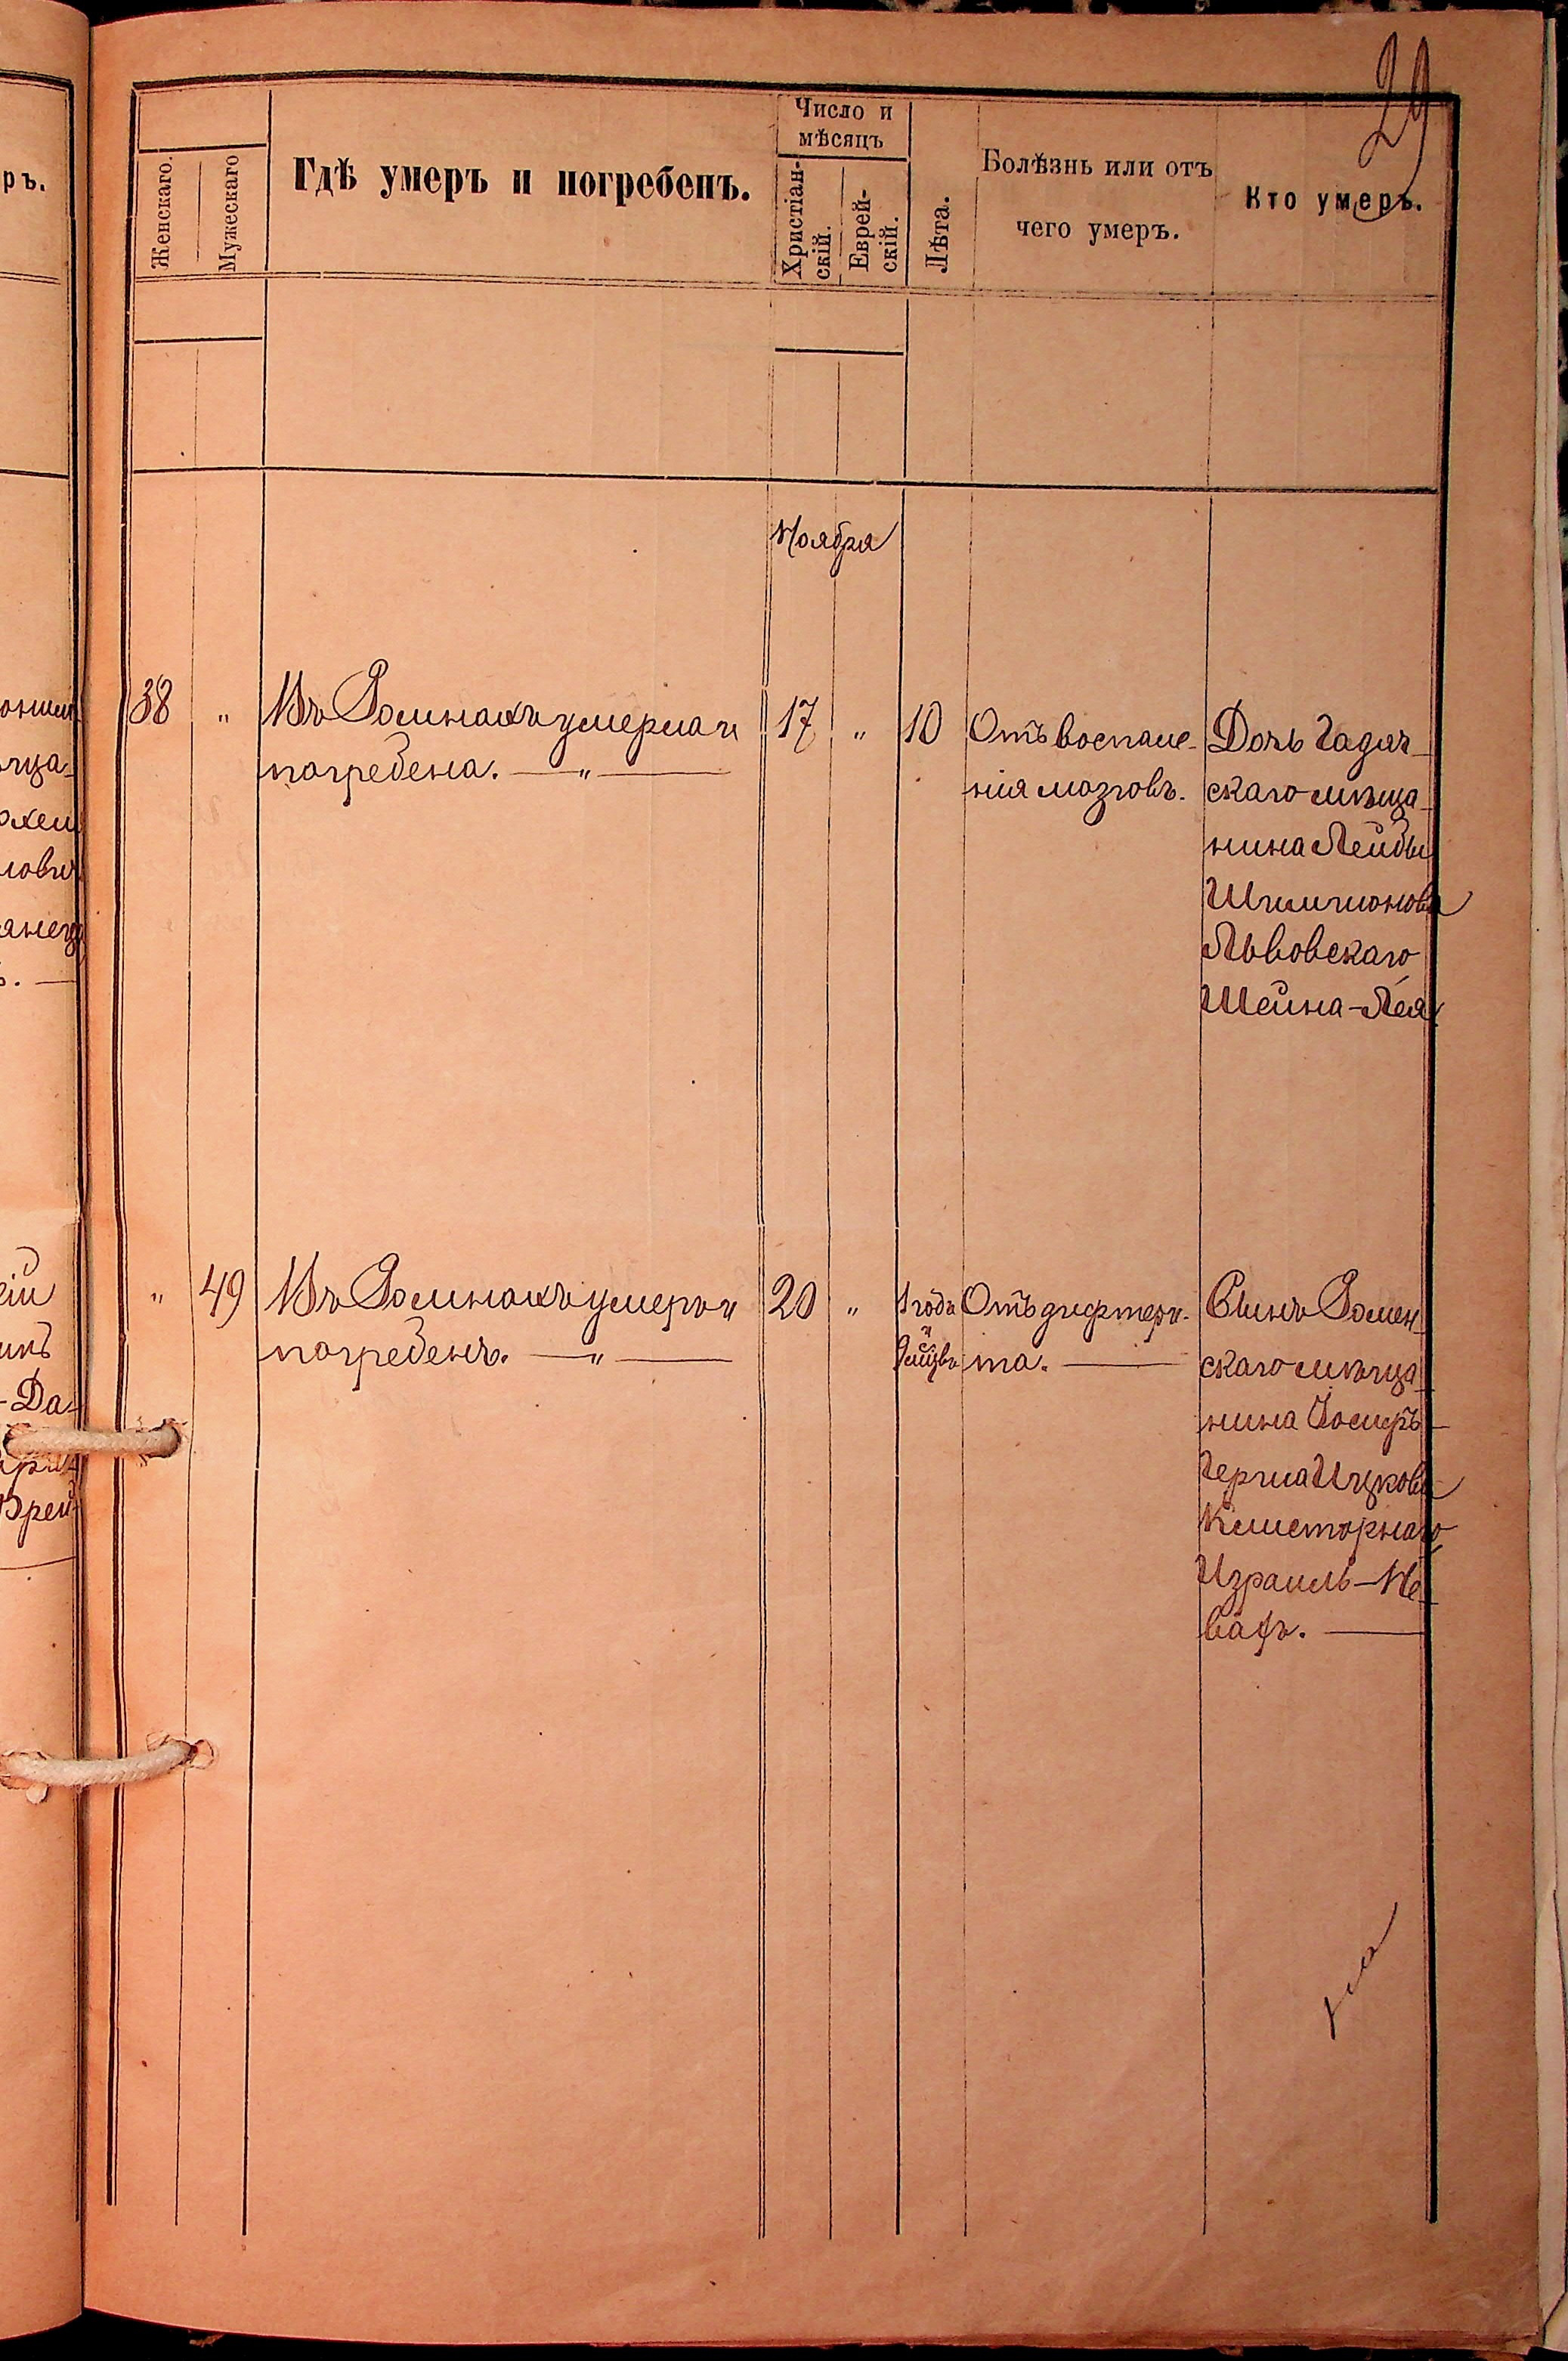 29
Женскаго.
Мужескаго
Гдѣ умеръ и погребенъ.
Число и
мѣсяцъ
Христіан-
скій.
Еврей-
скій.
Лѣта.
Болѣзнь или отъ
чего умеръ.
Кто умеръ.
Ноября
38 " Въ Ромнахъ умерла и
погребена. — " —
17 " 10
Отъ воспале-
нія мозговъ.
Дочь Гадяч-
скаго мѣща-
нина Лейбы
Шлиомонова
Львовскаго
Шейна-Лея
" 49 Въ Ромнахъ умеръ и
погребенъ. — " —
20 " 1 года
и
9 мцвъ
Отъ дифтери-
та. —
Сынъ Ромен-
скаго мѣща-
нина Іосифъ-
Герша Ицкова
Израиль-Не-
вахъ. —
ръ.
-Да-